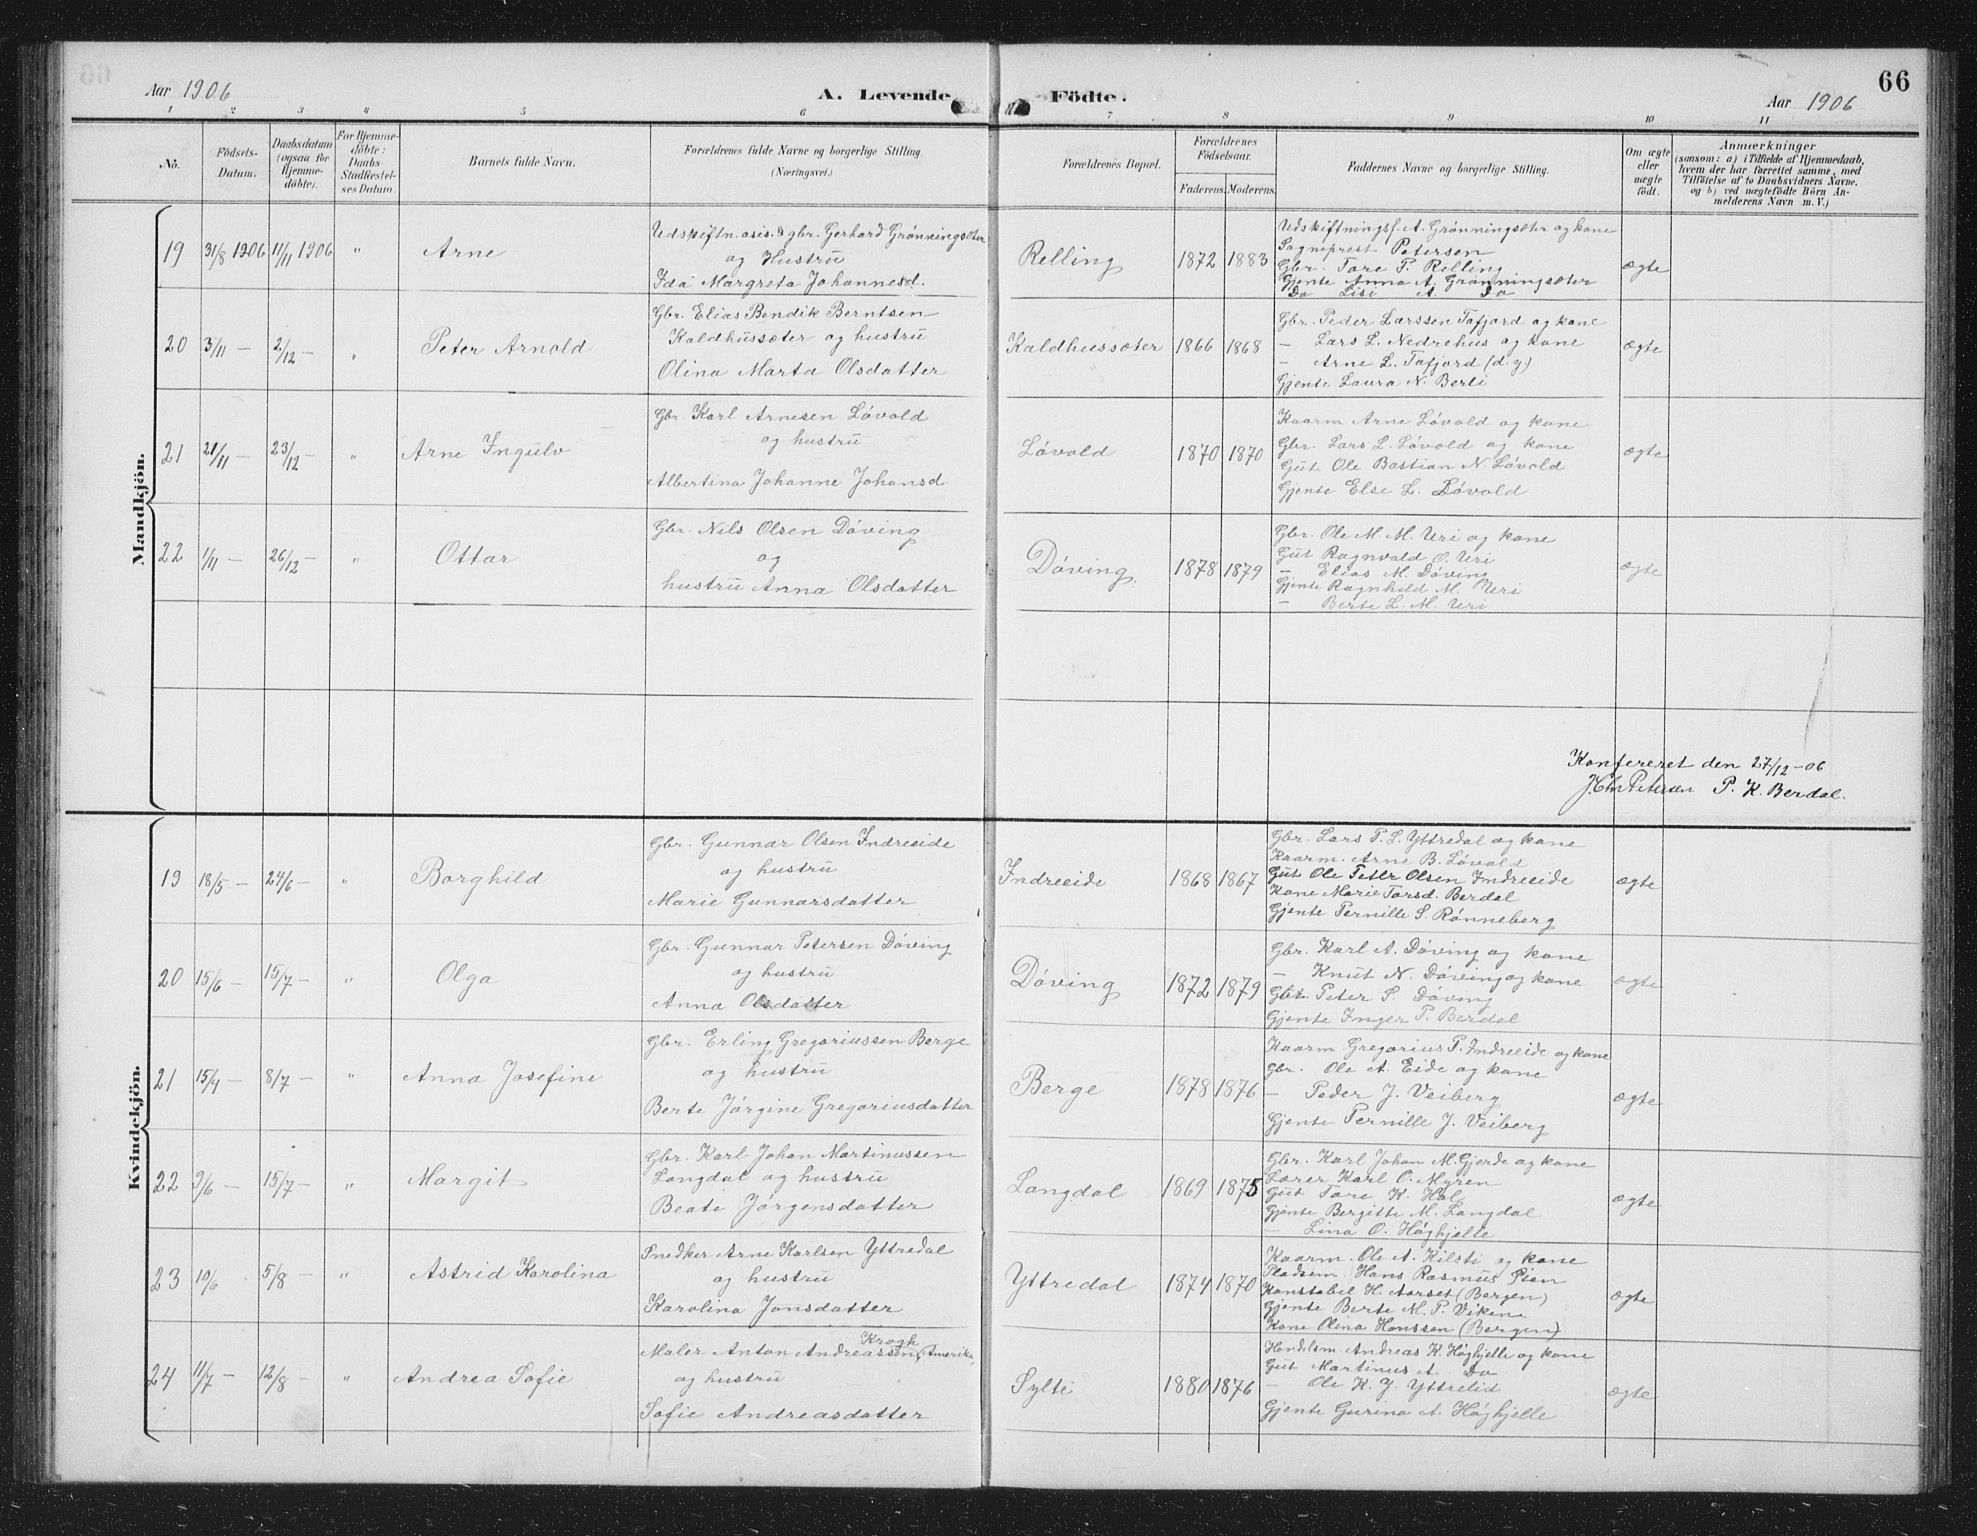 66
Aar 1906
A. Levende Födte.
Aar 1906
1 2 3 4 5 6 7 8 9 10 11
No.
Födsels-
Datum.
Daabsdatum
(ogsaa for
Hjemme-
döbte).
For Hjemme-
döbte:
Daabs
Stadfæstel-
ses Datum.
Barnets fulde Navn.
Forældrenes fulde Navne og borgerlige Stilling
(Næringsvei.)
Forældrenes Bopæl.
Forældrenes
Födselsaar.
Faderens.
Moderens.
Faddernes Navne og borgerlige Stilling.
Om ægte
eller
uægte
födt.
Anmærkninger
(saasom: a) i Tilfælde af Hjemmedaab,
hvem der har forrettet samme, med
Tilföielse af to Daabsvidners Navne.
og b) ved uægtefödte Börn An-
melderens Navn m. V.)
Mandkjön.
19 31/8 1906 11/11 1906 " Arne
Udskiftn. asis. & gbr. Gerhard Grønningsæter
og Hustru
Ida Margreta Johannesd.
Relling 1872 1883
Udskiftningsf. A. Grønningsæter og kone
Sogneprest Petersen
Gbr. Tore P. Relling
Gjente Anna A. Grønningsæter
Do Lisi A. Do
ægte
20 3/11 — 2/12 — " Peter Arnold
Gbr. Elias Bendik Berntsen
Kaldhussæter og hustru
Olina Marta Olsdatter
Kaldhussæter 1866 1868
Gbr. Peder Larssen Tafjord og kone
— Lars L. Nedrehus og kone
— Arne L. Tafjord (d.y)
Gjente Laura N. Berli
ægte
21 21/11 — 23/12 — " Arne Ingulv
Gbr. Karl Arnesen Løvold
og hustru
Albertina Johanne Johansd.
Løvold 1870 1870
Kaarm Arne Løvold og kone
Gbr. Lars L. Løvold og kone
Gut Ole Bastian N. Løvold
Gjente Else L. Løvold
ægte
22 1/11 — 26/12 — " Ottar
Gbr. Nils Olsen Døving
og
hustru Anna Olsdatter
Døving. 1878 1879
Gbr. Ole M. M. Uri og kone
Gut Ragnvald O. Uri
— Elias M. Døving
Gjente Ragnhild M. Uri
— Berte L. M. Uri
ægte
Konfereret den 27/12 —06
J. Chr Petersen P. K. Berdal.
Kvindekjön.
19 18/5 — 24/6 — " Borghild
Gbr. Gunnar Olsen Indreeide
og hustru
Marie Gunnarsdatter
Indreeide 1868 1867
Gbr. Lars P. L. Yttredal og kone
Kaarm. Arne B. Løvold
Gut Ole Peter Olsen Indreeide
Kone Marie Torsd. Berdal
Gjente Pernille S. Rønneberg
ægte
20 15/6 — 15/7 — " Olga
Gbr. Gunnar Petersen Døving
og hustru
Anna Olsdatter
Døving 1872 1879
Gbr. Karl A. Døving og kone
— Knut N. Døving og kone
Gbr. Peter P. Døving
Gjente Inger P. Berdal
ægte
21 15/4 — 8/7 — " Anna Josefine
Gbr. Erling Gregoriussen Berge
og hustru
Berte Jørgine Gregoriusdatter
Berge 1878 1876
Kaarm Gregorius P. Indreeide og kone
Gbr. Ole A. Eide og kone
— Peder J. Veiberg
Gjente Pernille J. Veiberg
ægte
22 9/6 — 15/7 — " Margit
Gbr. Karl Johan Martinussen
Langdal og hustru
Beate Jørgensdatter
Langdal 1869 1875
Gbr. Karl Johan M. Gjerde og kone
Lærer Karl O. Myren
Gut Tore K. Hol
Gjente Bergitte M. Langdal
— Lina O. Høghjelle
ægte
23 10/6 5/8 — " Astrid Karolina
Snedker Arne Karlsen Yttredal
og hustru
Karolina Jonsdatter
Yttredal 1874 1870
Kaarm. Ole A. Kilsti og kone
Pladsem. Hans Rasmus Sien
Konstabel H. Aarset (Bergen)
Gjente Berte M. P. Viken
Kone Olina Honssen (Bergen)
ægte
24 11/7 — 12/8 — " Andrea Sofie
Krogh
Maler Anton Andreassen, Amerika,
og hustru
Sofie Andreasdatter
Sylte 1880 1876
Handelsm. Andreas K. Høghjelle og kone
Gut Martinus A. Do
— Ole K. J. Yttrelid
Gjente Gurina A. Høghjelle
ægte